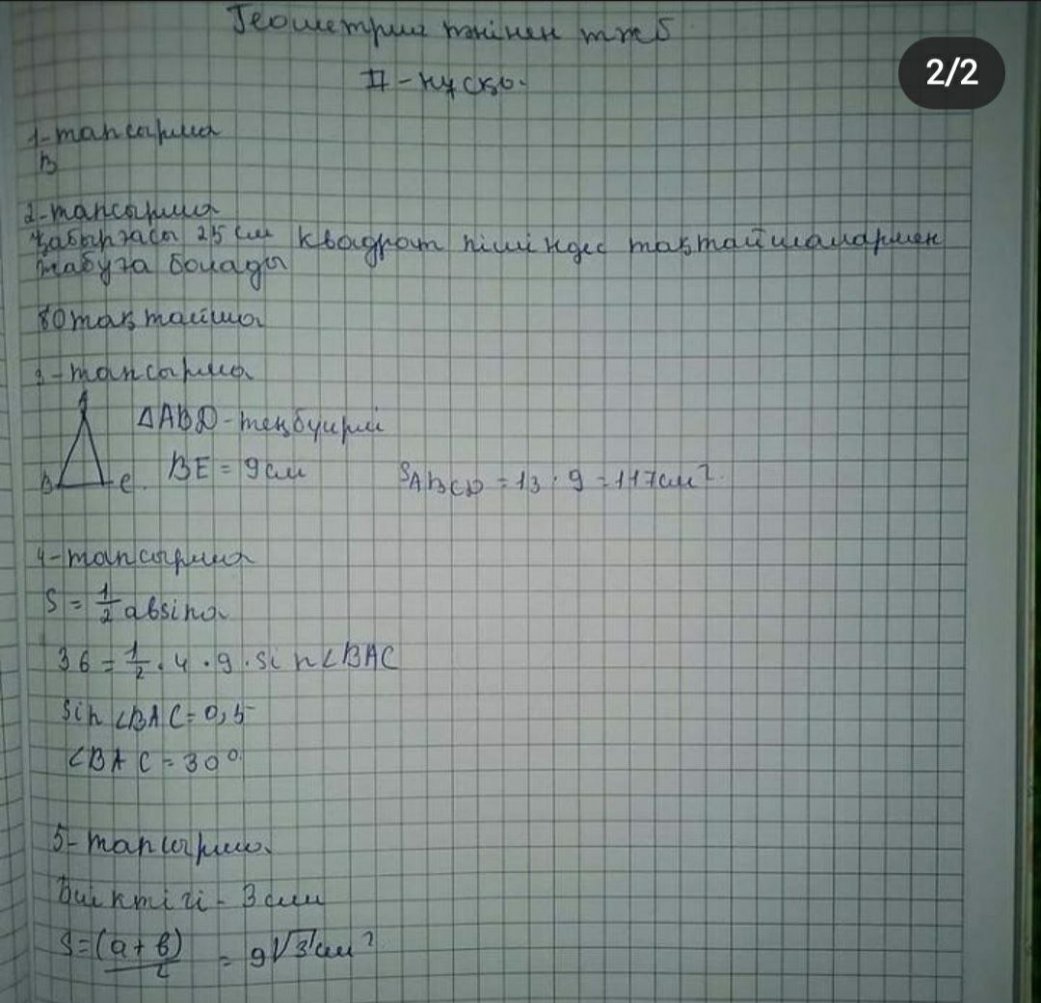 Геометрия пәнінен тжб
2/2
II - нұсқа.
1-тапсырма
B
2-тапсырма
Қабырғасы 25 см квадрат пішіндес тақтайшалармен
жабуға болады
80 тақтайша
3-тапсырма
A
ΔABD - теңбүйірлі
BE = 9 см
S ABCD = 13 · 9 = 117 см²
C
4-тапсырма
S = 1/2 absinα
36 = 1/2 · 4 · 9 · sin∠BAC
sin∠BAC = 0,5
∠BAC = 30°
5-тапсырма
Биіктігі - 3 см
S = (a + b)/2 = 9√3 см²